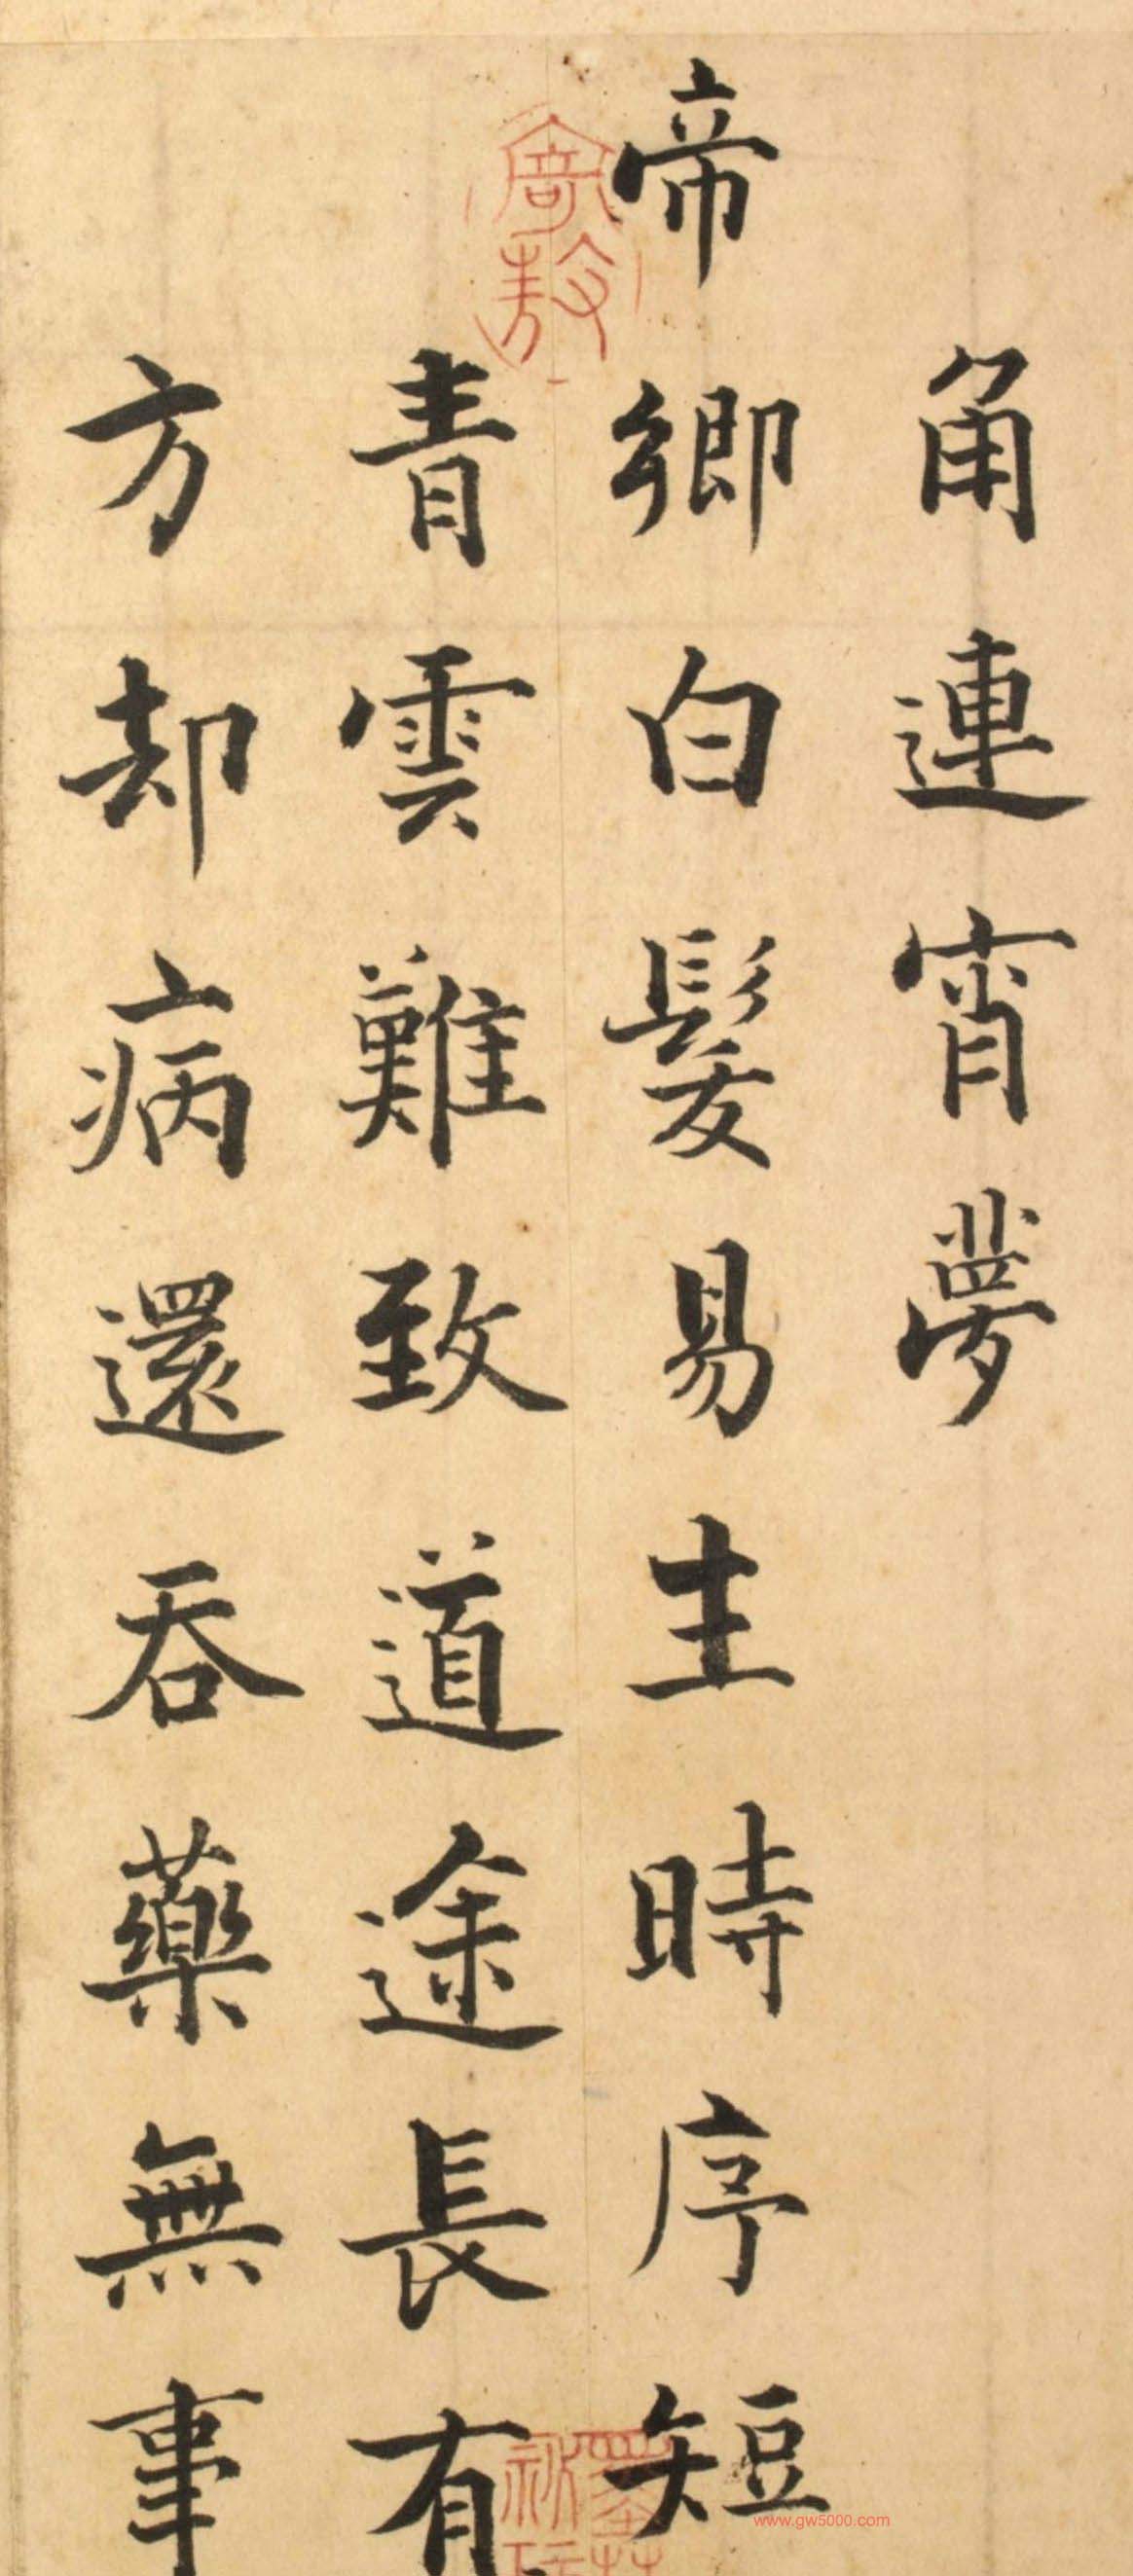 角連宵夢
帝鄉白髮易生時序短
青雲難致道途長有
方却病還吞藥無事
www.gw5000.com